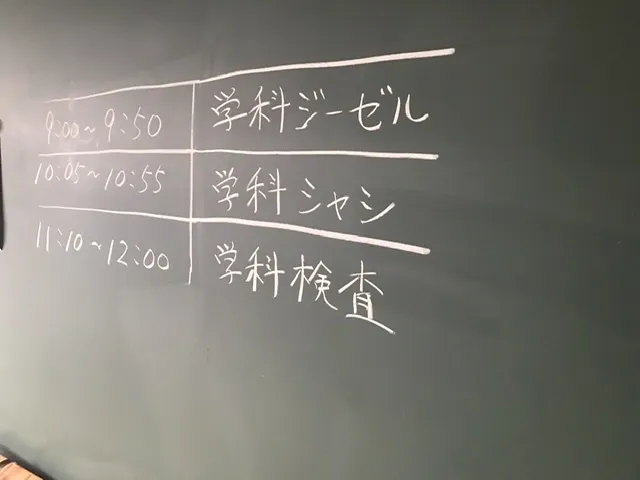 9:00～9:50 学科ジーゼル
10:05～10:55 学科シャシ
11:10～12:00 学科検査